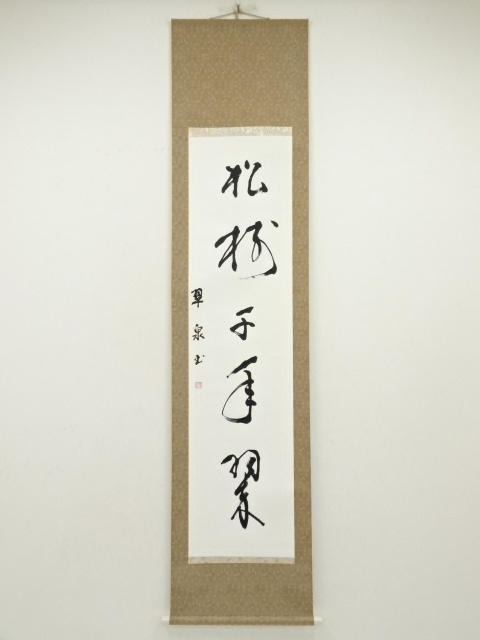 松樹千年翠
翠泉書